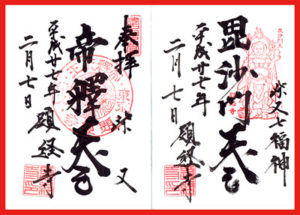 奉拝
柴又
帝釋天
平成廿七年
二月七日
題経寺
柴又七福神
毘沙門天
平成廿七年
二月七日
題経寺